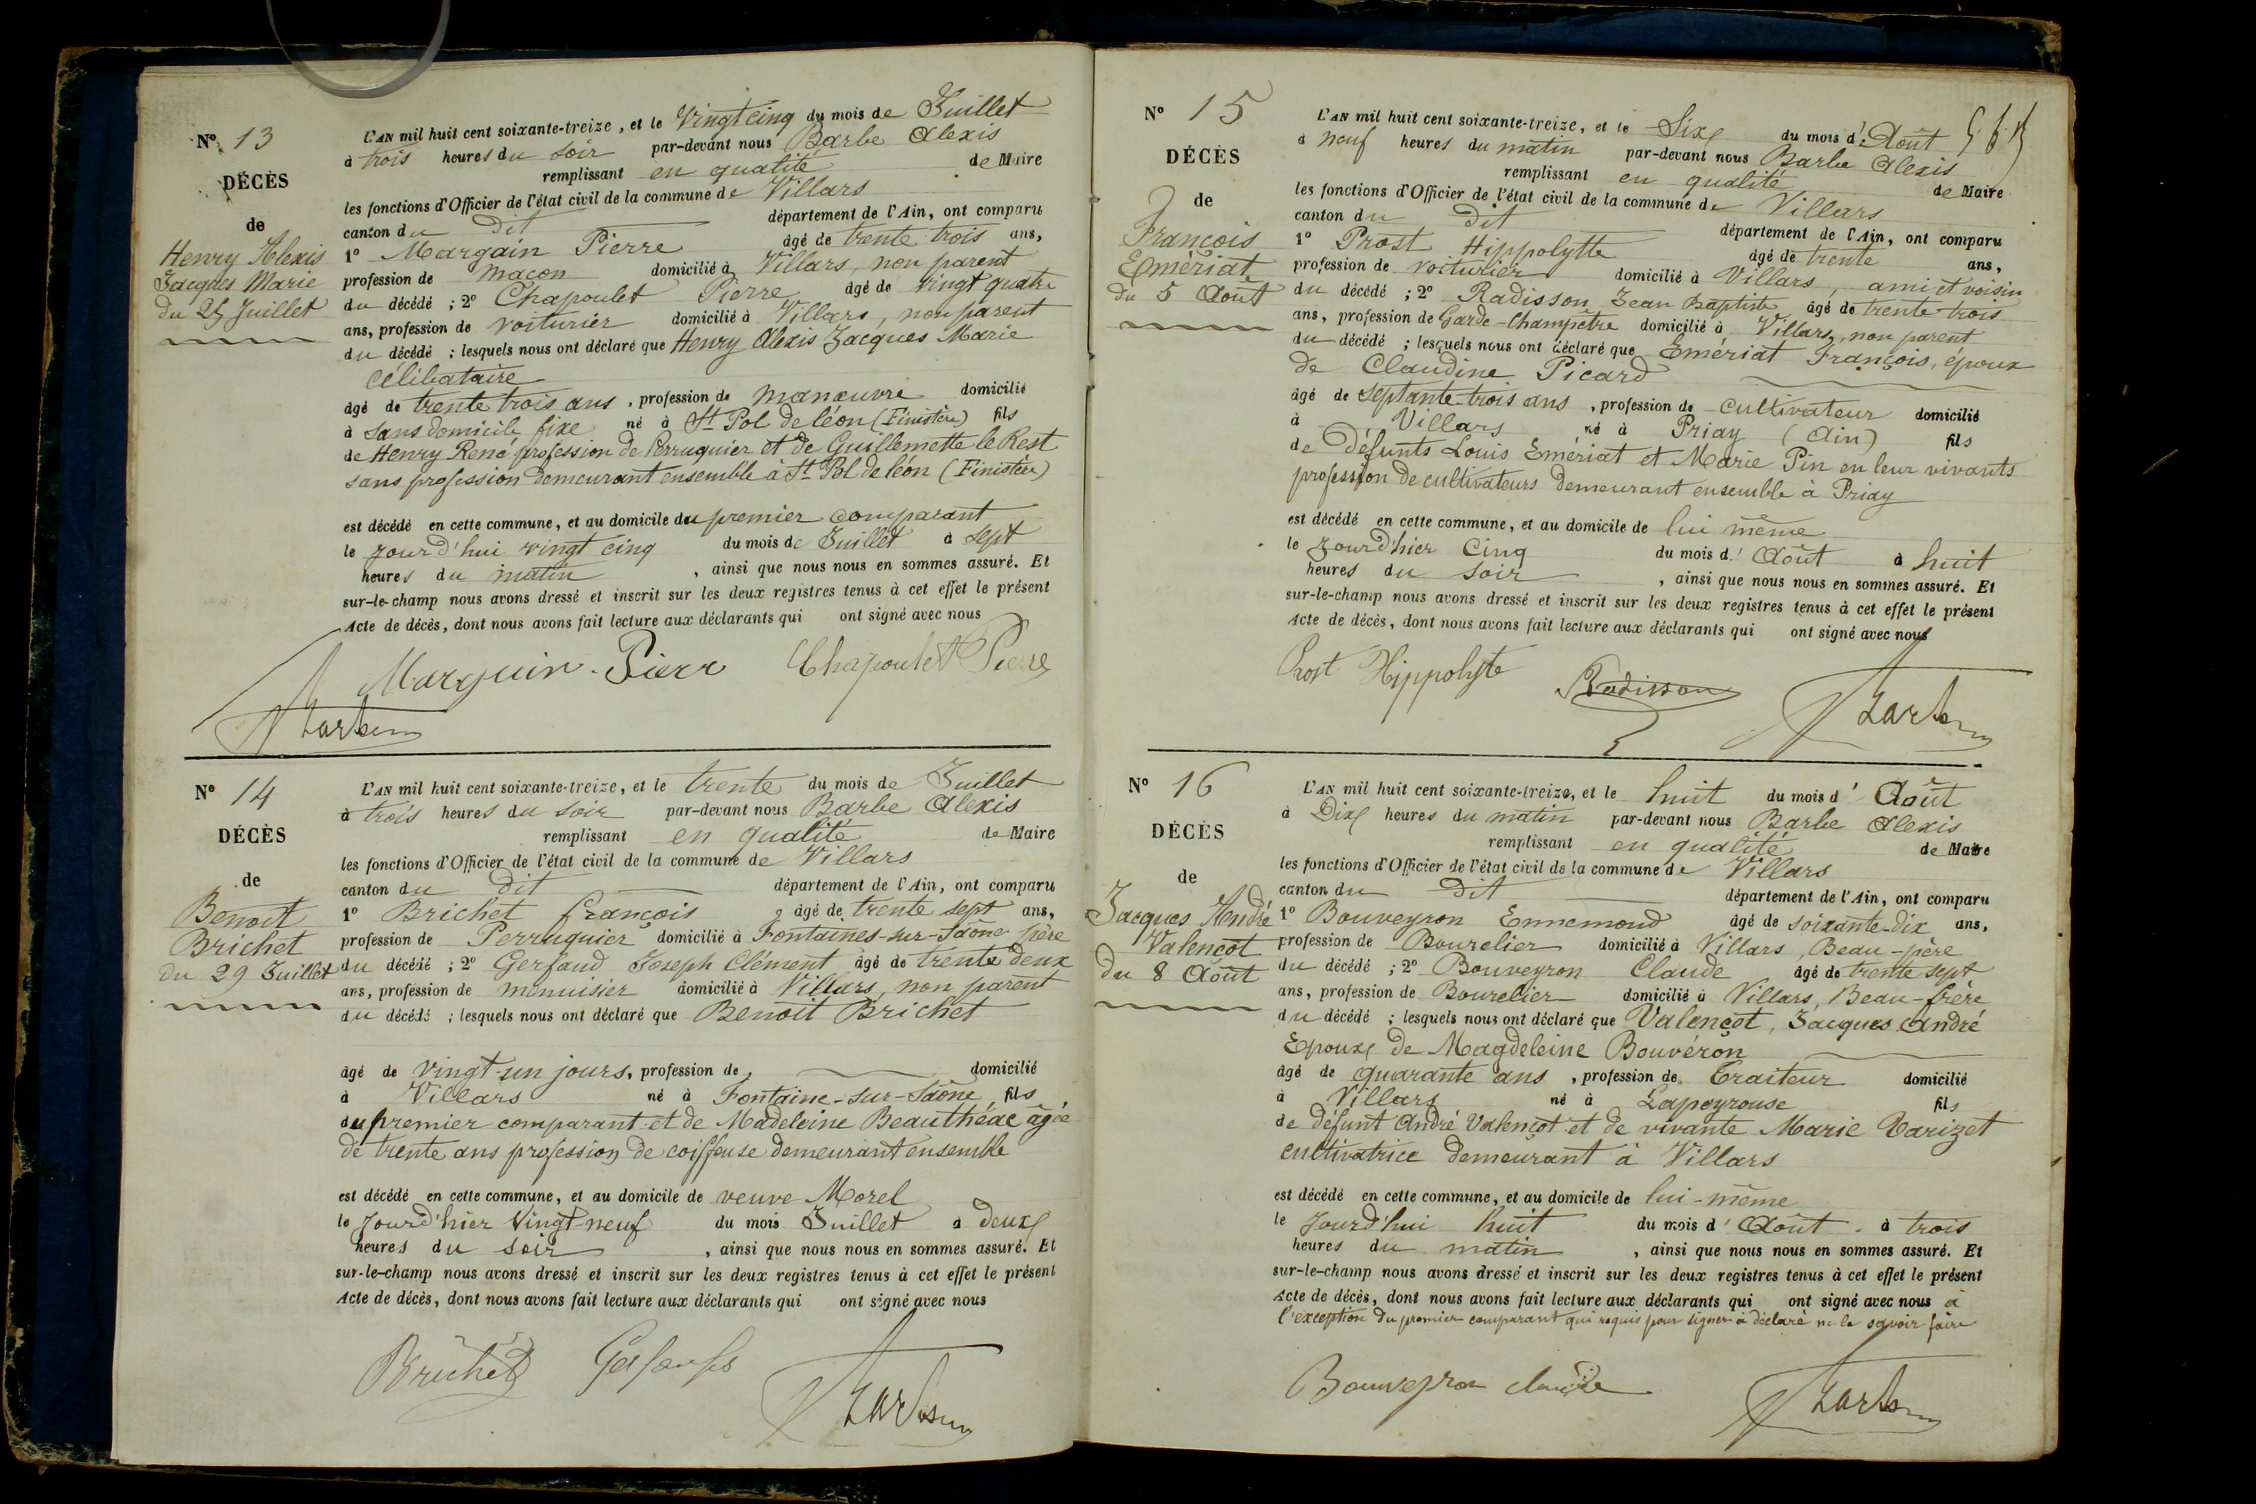 Nº 13
DÉCÈS
de
Henry Alexis
Jacques Marie
du 25 Juillet
L'AN mil huit cent soixante-treize, et le Vingt cinq du mois de Juillet
à trois heures du soir par-devant nous Barbe Alexis
remplissant en qualité de Maire
les fonctions d'Officier de l'état civil de la commune de Villars
canton du dit département de l'Ain, ont comparu
1º Margain Pierre âgé de trente trois ans,
profession de maçon domicilié à Villars, non parent
du décédé ; 2º Chapoulet Pierre âgé de vingt quatre
ans, profession de voiturier domicilié à Villars, non parent
du décédé ; lesquels nous ont déclaré que Henry Alexis Jacques Marie
célibataire
âgé de trente trois ans, profession de manœuvre domicilié
à sans domicile fixe né à St Pol de léon (Finistère) fils
de Henry René profession de Perruquier et de Guillemette le Rest
sans profession demeurant ensemble à St Pol de léon (Finistère)
est décédé en cette commune, et au domicile du premier comparant
le jourd'hui vingt cinq du mois de Juillet à sept
heures du matin, ainsi que nous nous en sommes assuré. Et
sur-le-champ nous avons dressé et inscrit sur les deux registres tenus à cet effet le présent
Acte de décès, dont nous avons fait lecture aux déclarants qui ont signé avec nous
Marguin Pierr Chapoulet Pierre
Nº 14
DÉCÈS
de
Benoit
Brichet
du 29 Juillet
L'AN mil huit cent soixante-treize, et le trente du mois de Juillet
à trois heures du soir par-devant nous Barbe Alexis
remplissant en qualité de Maire
les fonctions d'Officier de l'état civil de la commune de Villars
canton du dit département de l'Ain, ont comparu
1º Brichet françois âgé de trente sept ans,
profession de Perruquier domicilié à Fontaines-sur-Saône père
du décédé ; 2º Gerfaud Joseph Clément âgé de trente deux
ans, profession de menuisier domicilié à Villars, non parent
du décédé ; lesquels nous ont déclaré que Benoit Brichet
âgé de vingt-un jours, profession de domicilié
à Villars né à Fontaine-sur-Saône fils
du premier comparant et de Madeleine Beauthéac âgée
de trente ans profession de coiffeuse demeurant ensemble
est décédé en cette commune, et au domicile de veuve Morel
le jourd'hier Vingt-neuf du mois Juillet à deux
heures du soir, ainsi que nous nous en sommes assuré. Et
sur-le-champ nous avons dressé et inscrit sur les deux registres tenus à cet effet le présent
Acte de décès, dont nous avons fait lecture aux déclarants qui ont signé avec nous
Brichet
Nº 15
DÉCÈS
de
François
Emériat
du 5 Août
L'AN mil huit cent soixante-treize, et le Six du mois d'Août
à neuf heures du matin par-devant nous Barbe Alexis
remplissant en qualité de Maire
les fonctions d'Officier de l'état civil de la commune de Villars
canton du dit département de l'Ain, ont comparu
1º Prost Hippolytte âgé de trente ans,
profession de voiturier domicilié à Villars, ami et voisin
du décédé ; 2º Radisson Jean Baptiste âgé de trente-trois
ans, profession de Garde-Champêtre domicilié à Villars, non parent
du décédé ; lesquels nous ont déclaré que Emériat François, époux
de Claudine Picard
âgé de septante-trois ans, profession de cultivateur domicilié
à Villars né à Priay (Ain) fils
de Défunts Louis Emériat et Marie Pin en leur vivants
profession de cultivateurs demeurant ensemble à Priay
est décédé en cette commune, et au domicile de lui même
le jourd'hier Cinq du mois d'Août à huit
heures du soir, ainsi que nous nous en sommes assuré. Et
sur-le-champ nous avons dressé et inscrit sur les deux registres tenus à cet effet le présent
Acte de décès, dont nous avons fait lecture aux déclarants qui ont signé avec nous
Prost Hippolyte Radisson
Nº 16
DÉCÈS
de
Jacques André
Valençot
du 8 Août
L'AN mil huit cent soixante-treize, et le huit du mois d'Août
à Dix heures du matin par-devant nous Barbe Alexis
remplissant en qualité de Maire
les fonctions d'Officier de l'état civil de la commune de Villars
canton du dit département de l'Ain, ont comparu
1º Bouveyron Ennemond âgé de soixante-dix ans,
profession de Bourelier domicilié à Villars, Beau-père
du décédé ; 2º Bouveyron Claude âgé de trente sept
ans, profession de Bourelier domicilié à Villars, Beau-frère
du décédé ; lesquels nous ont déclaré que Valençot, Jacques André
Epoux de Magdeleine Bouvéron
âgé de quarante ans, profession de Traiteur domicilié
à Villars né à Lapeyrouse fils
de défunt André Valençot et de vivante Marie Varizet
cultivatrice demeurant à Villars
est décédé en cette commune, et au domicile de lui-même
le jourd'hui huit du mois d'Août à trois
heures du matin, ainsi que nous nous en sommes assuré. Et
sur-le-champ nous avons dressé et inscrit sur les deux registres tenus à cet effet le présent
Acte de décès, dont nous avons fait lecture aux déclarants qui ont signé avec nous à
l'exception du premier comparant qui requis pour signer a déclaré ne le savoir faire
Bouveyron claude